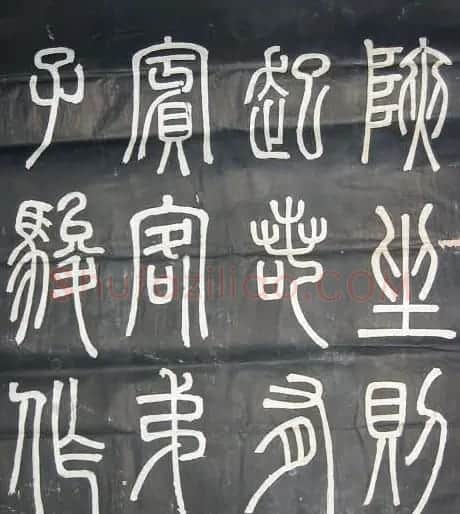 陝坐則
起有
賓客弟
子駿作
shufaziliao.COM